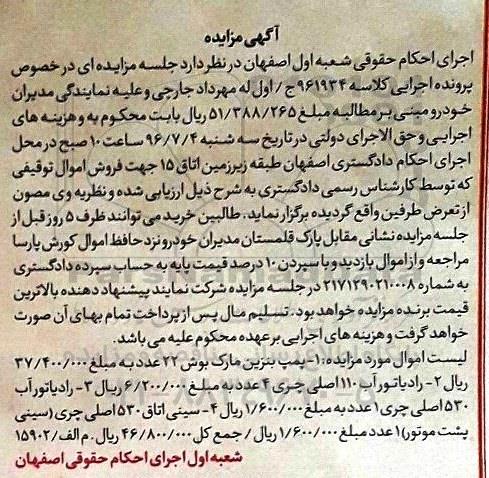 آگهی مزایده
اجرای احکام حقوقی شعبه اول اصفهان در نظر دارد جلسه مزایده ای در خصوص
پرونده اجرایی کلاسه ۹۶۱۹۳۴ ج / اول له مهرداد جارچی و علیه نمایندگی مدیران
خودرو مبنی بر مطالبه مبلغ ۵۱/۳۸۸/۲۶۵ ریال بابت محکوم به و هزینه های
اجرایی و حق الاجرای دولتی در تاریخ سه شنبه ۹۶/۷/۴ ساعت ۱۰ صبح در محل
اجرای احکام دادگستری اصفهان طبقه زیرزمین اتاق ۱۵ جهت فروش اموال توقیفی
که توسط کارشناس رسمی دادگستری به شرح ذیل ارزیابی شده و نظریه وی مصون
از تعرض طرفین واقع گردیده برگزار نماید. طالبین خرید می توانند ظرف ۵ روز قبل از
جلسه مزایده نشانی مقابل پارک قلمستان مدیران خودرو نزد حافظ اموال کورش پارسا
مراجعه و از اموال بازدید و با سپردن ۱۰ درصد قیمت پایه به حساب سپرده دادگستری
به شماره ۲۱۷۱۲۹۰۲۱۰۰۰۸ در جلسه مزایده شرکت نمایند پیشنهاد دهنده بالاترین
قیمت برنده مزایده خواهد بود. تسلیم مال پس از پرداخت تمام بهای آن صورت
خواهد گرفت و هزینه های اجرایی بر عهده محکوم علیه می باشد.
لیست اموال مورد مزایده: ۱- پمپ بنزین مارک بوش ۲۲ عدد به مبلغ ۳۷/۴۰۰/۰۰۰
ریال ۲- رادیاتور آب ۱۱۰ اصلی چری ۴ عدد به مبلغ ۶/۲۰۰/۰۰۰ ریال ۳- رادیاتور آب
۵۳۰ اصلی چری ۱ عدد به مبلغ ۱/۶۰۰/۰۰۰ ریال ۴- سینی اتاق ۵۳۰ اصلی چری (سینی
پشت موتور) ۱ عدد مبلغ ۱/۶۰۰/۰۰۰ ریال / جمع کل ۴۶/۸۰۰/۰۰۰ ریال. م الف/ ۱۵۹۰۲
شعبه اول اجرای احکام حقوقی اصفهان